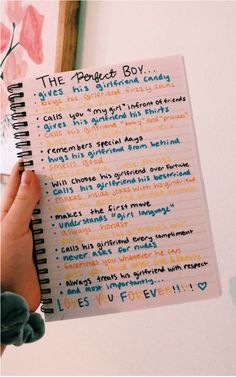 THE Perfect Boy...
• gives his girlfriend candy
• buys his girlfriend fuzzy socks
• calls you "my girl" infront of friends
• gives his girlfriend his shirts
• calls his girlfriend "baby" and "princess"
• remembers special days
• hugs his girlfriend from behind
• smells good
• Will choose his girlfriend over fortnite
• calls his girlfriend his bestfriend
• makes inside jokes with his girlfriend
• makes the first move
• understands "girl language"
• always honest
• calls his girlfriend every compliment
• never asks for nudes
• facetimes you whenever he can
• always treats his girlfriend with respect
• and most importantly...
LOVES YOU FOREVER!!!!